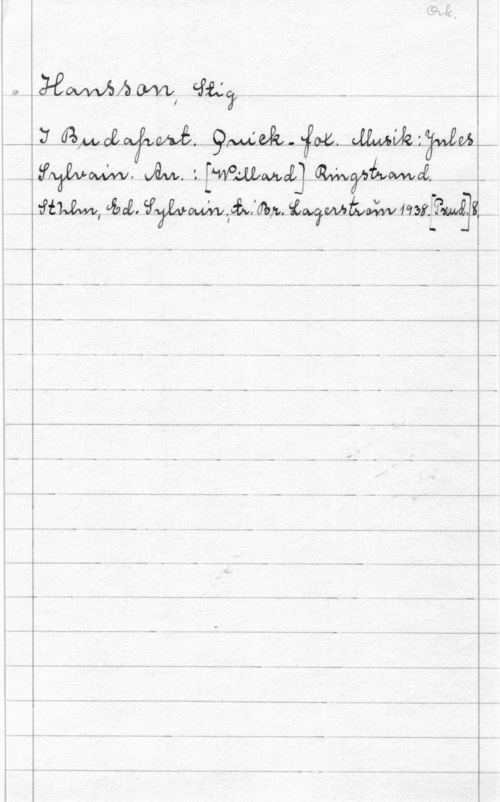 Ork.
Hansson, Stig
I Budapest. Quick-fox. Musik: Jules
Sylvain. Arr. : [Willard] Ringstrand.
Sthlm, Ed. Sylvain, tr. i Br. Lagerström 1938. [Pseud.] 8.